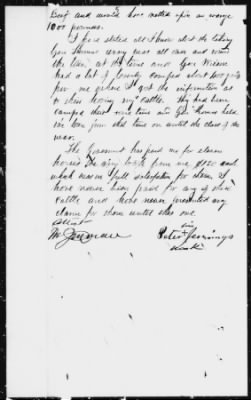 Beef and would have netted up in an average
1000 pounds.
I have stated all I know about the taking
Gen Thomas army was all around and
the line at the time and Gen Wilson
had a lot of Cavalry camped about two miles
from me where I got the information as
to them having my cattle. They had been
camped there some time and Gen Thomas held
the line from that time on until the close of the
war.
The Government has paid me for eleven
horses the army took from me and
which was in full satisfaction for them. I
have never been paid for any of these
cattle and have never presented any
claim for them until this one.
Attest his
Peter + Jennings
mark